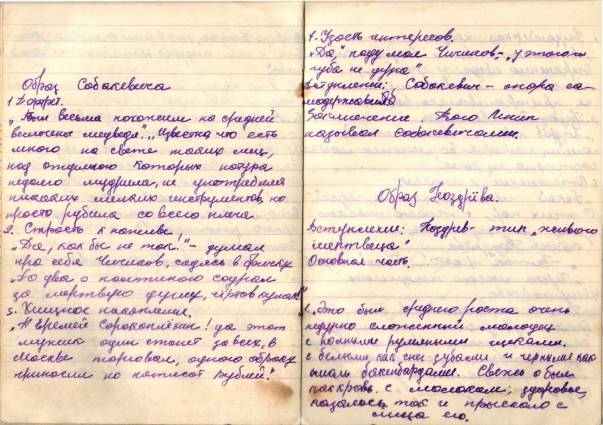 Образ Собакевича
1. Портрет.
весьма похожим на средней
величины медведя". „Известно что есть
много на свете таких лиц,
над отделкою которых натура
недолго мудрила, не употребляя
никаких мелких инструментов, но
просто рубила со всего плеча
2. Страсть к наживе,
„Да, как бы не так." – думал
про себя Чичиков, садясь в бричку
„По два с полтиною содрал
за мертвую душу,
3. Хищное накопление.
„А Еремей Сорокоплёхин! да этот
мужик один станет за всех, в
Москве торговал, одного оброку
приносил по пятисот рублей."
4. Узость интересов.
„Да," подумал Чичиков, – „у этого
губа не дура"
Вступление; Собакевич – опора са-
модержавия
Заключение, Кого Ленин
называл Собакевичами.
Образ Ноздрёва.
Вступление: Ноздрев – тип „живого
мертвеца"
Основная часть.
1. Это был среднего роста очень
недурно сложенный молодец
с полными румяными щеками.
с белыми как снег зубами и черными как
смоль бакенбардами. Свеж он был
как кровь с молоком; здоровье,
казалось, так и прыскало с
лица его.